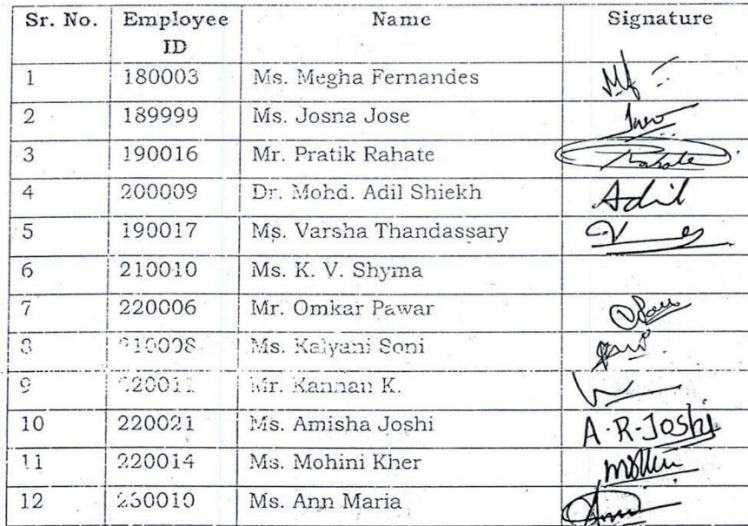 Sr. No. Employee ID Name Signature
1 180003 Ms. Megha Fernandes
2 189999 Ms. Josna Jose
3 190016 Mr. Pratik Rahate Rahate
4 200009 Dr. Mohd. Adil Shiekh Adil
5 190017 Ms. Varsha Thandassary
6 210010 Ms. K. V. Shyma
7 220006 Mr. Omkar Pawar
8 210008 Ms. Kalyani Soni
9 220011 Mr. Kannan K.
10 220021 Ms. Amisha Joshi A.R.Joshi
11 220014 Ms. Mohini Kher
12 230010 Ms. Ann Maria